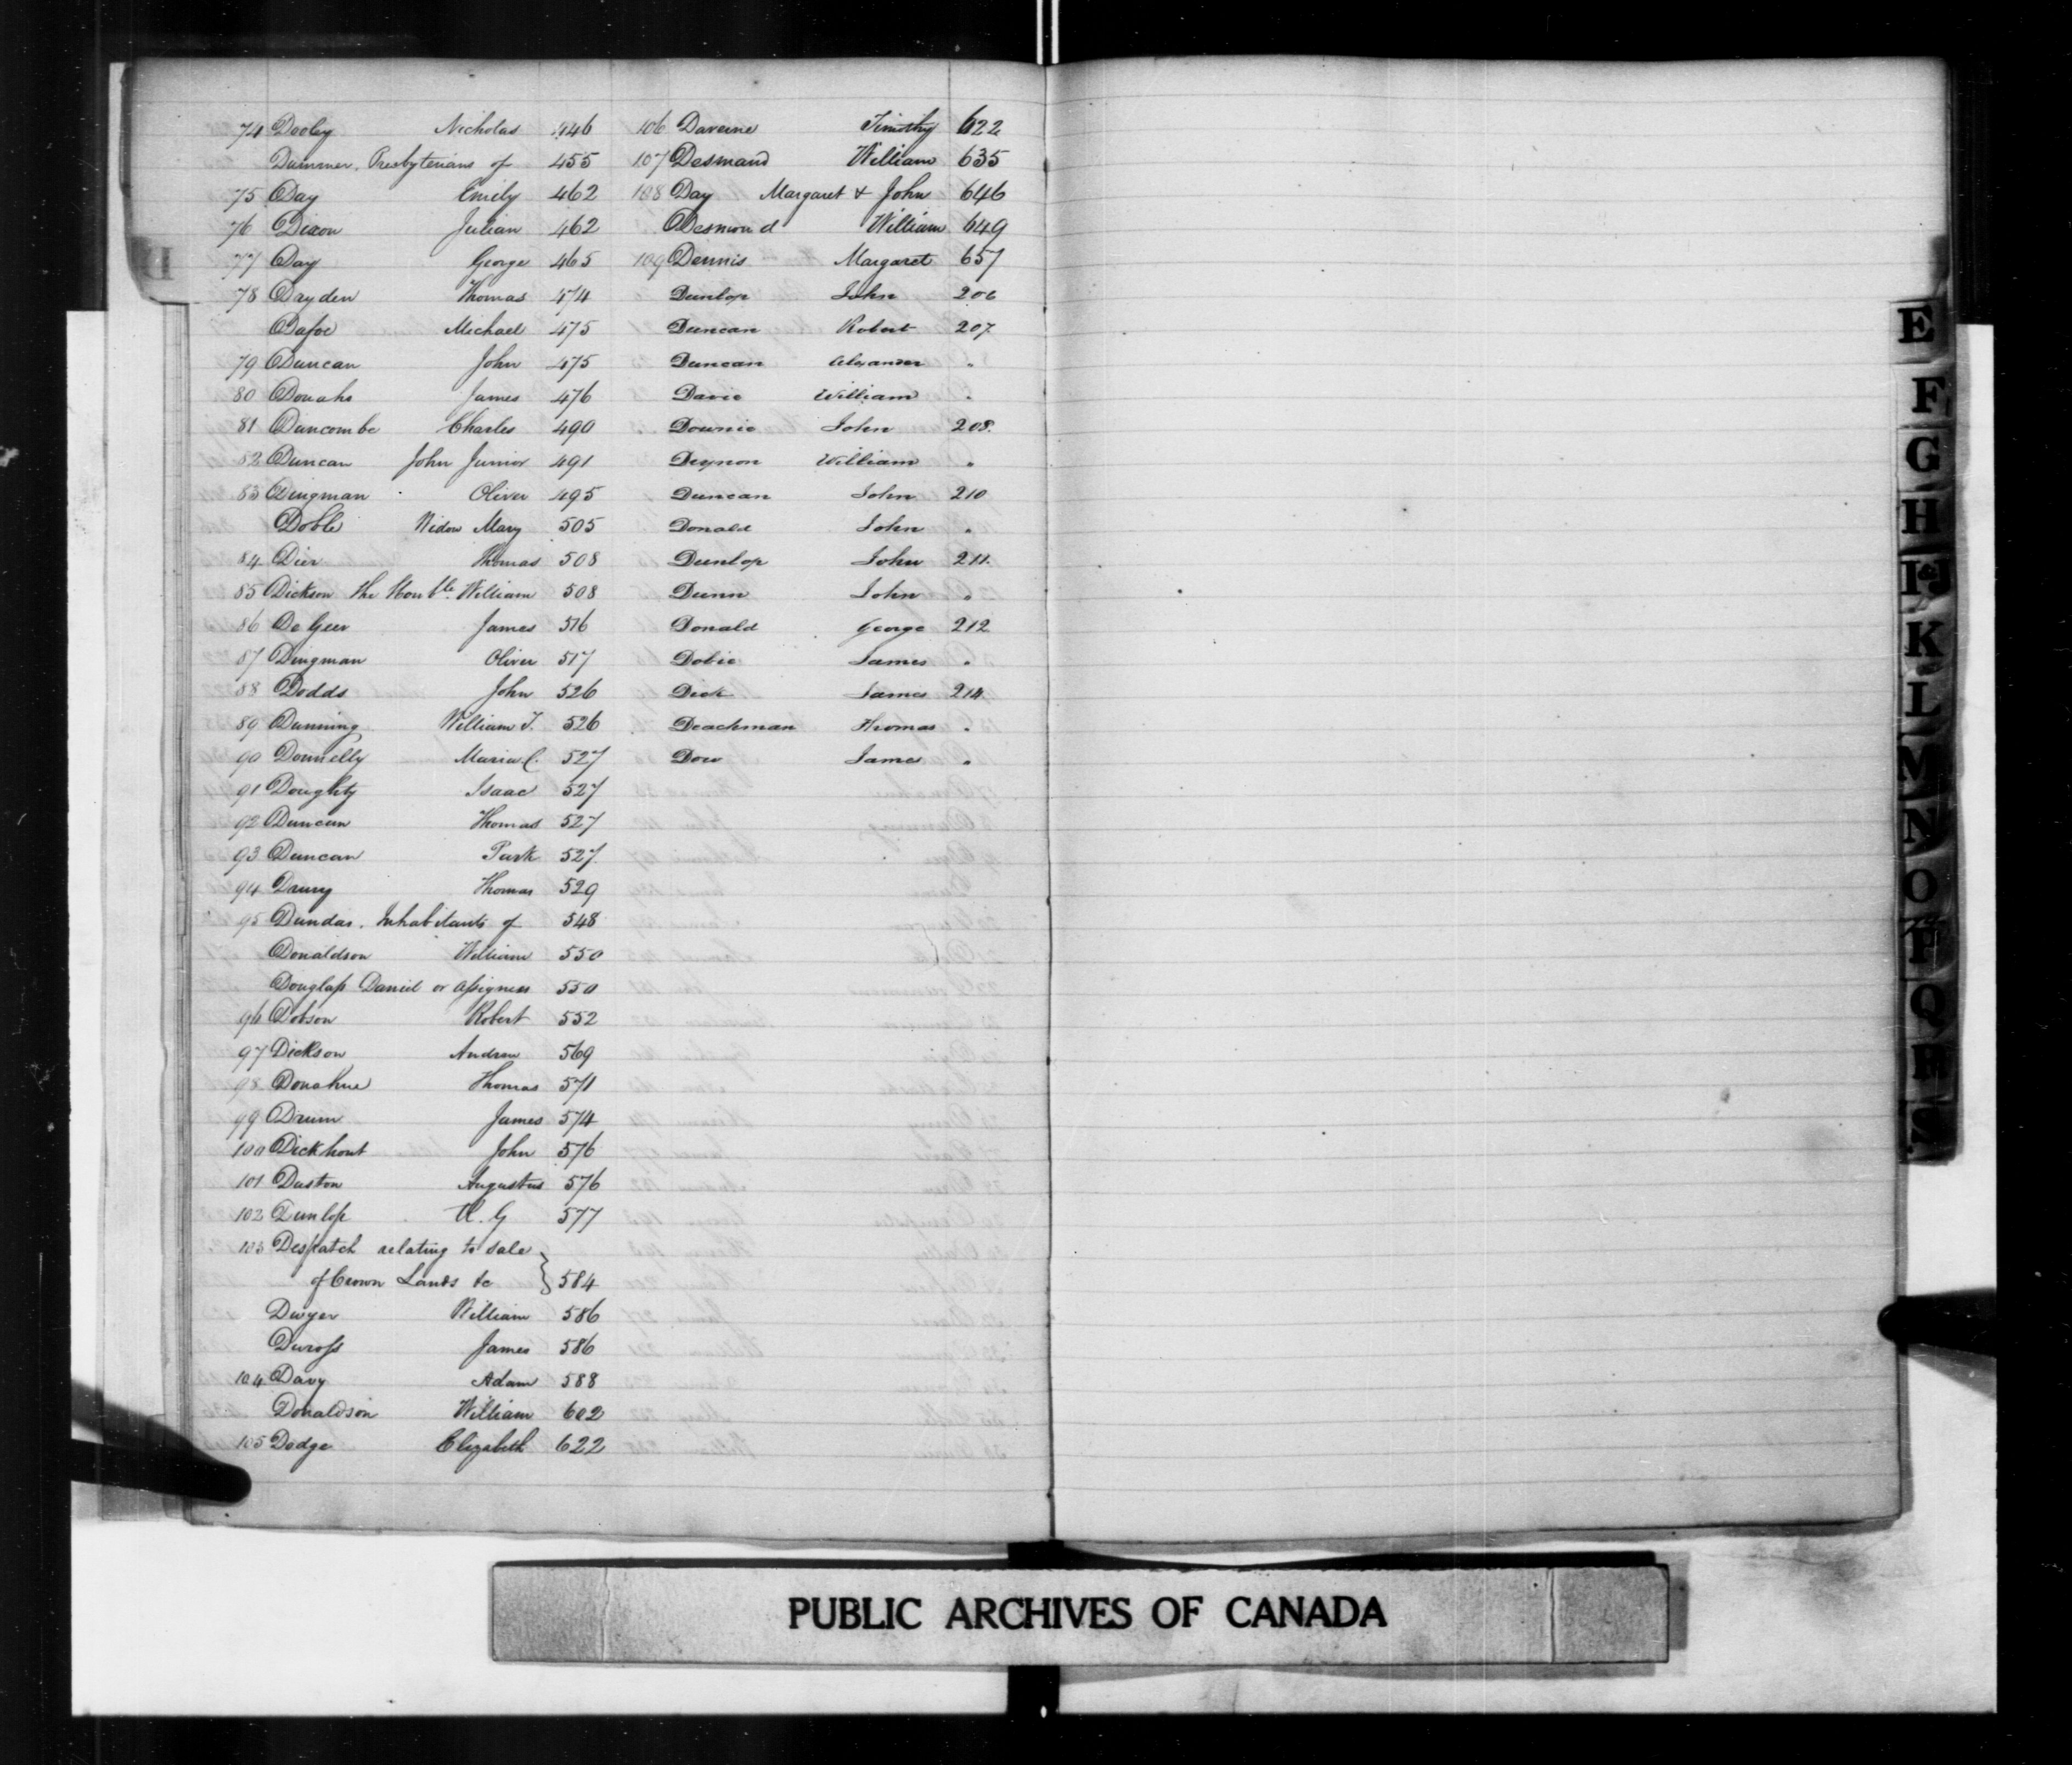 74 Dooley Nicholas 446
Dummer, Presbyterians of 455
75 Day Emily 462
76 Dixon Julian 462
77 Day George 465
78 Dayden Thomas 474
Dafoe Michael 475
79 Duncan John 475
80 Donahs James 476
81 Duncombe Charles 490
82 Duncan John Junior 491
83 Dingman Oliver 495
Doble Widow Mary 505
84 Dier Thomas 508
85 Dickson The Honble. William 508
86 DeGeer James 516
87 Dingman Oliver 517
88 Dodds John 526
89 Dunning William T. 526
90 Donnelly Maria C. 527
91 Doughty Isaac 527
92 Duncan Thomas 527
93 Duncan Park 527
94 Drury Thomas 529
95 Dundas, Inhabitants of 548
Donaldson William 550
Douglass Daniel or assignees 550
96 Dobson Robert 552
97 Dickson Andrew 569
98 Donahue Thomas 571
99 Drum James 574
100 Dickhout John 576
101 Duston Augustus 576
102 Dunlop G 577
103 Despatch relating to sale
of Crown Lands &c 584
Dwyer William 586
Duross James 586
104 Davy Adam 588
Donaldson William 602
105 Dodge Elizabeth 622
106 Daverne Timothy 622
107 Desmand William 635
108 Day Margaret & John 646
Desmond William 649
109 Dennis Margaret 657
Dunlop John 206
Duncan Robert 207
Duncan Alexander "
Davie William "
Downie John 208.
Deynon William "
Duncan John 210
Donald John "
Dunlop John 211.
Dunn John "
Donald George 212
Dobie James "
Dick James 214
Deachman Thomas "
Dow James "
E
F
G
H
K
L
M
N
O
P
Q
R
PUBLIC ARCHIVES OF CANADA